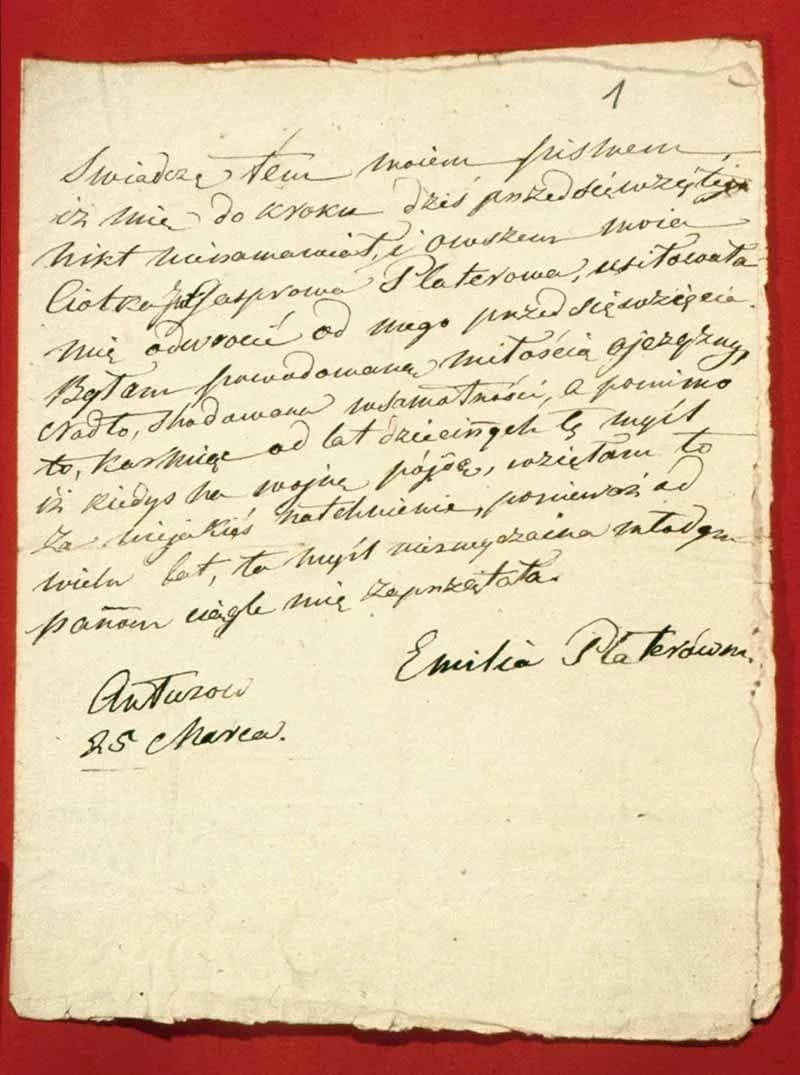 1
Swiadczę tém moiem pismem,
iż mię do kroku dziś przedsięwziętego
nikt nienamawiał, i owszem moia
Ciotka Gasprowa Platerowa, usiłowała
mię odwrocić od mego przedsięwzięcia.
Byłam powodowana miłością ojczyzny,
Nadto, chodowana w samotności, a pomimo
to, karmiąc od lat dziecinnych tę myśl
iż kiedyś na wojnę pójdę, wzięłam to
za niejakięś natchnienie, ponieważ od
wielu lat, ta myśl niezwyczaina młodym
pannom ciągle mię zaprzątała.
Emilia Platerówna.
Antuzow
25 Marca.